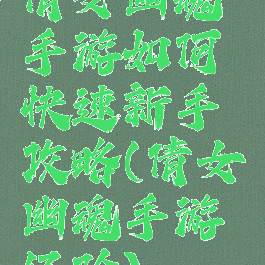 倩女幽魂
手游如何
快速新手
攻略(倩女
幽魂手游